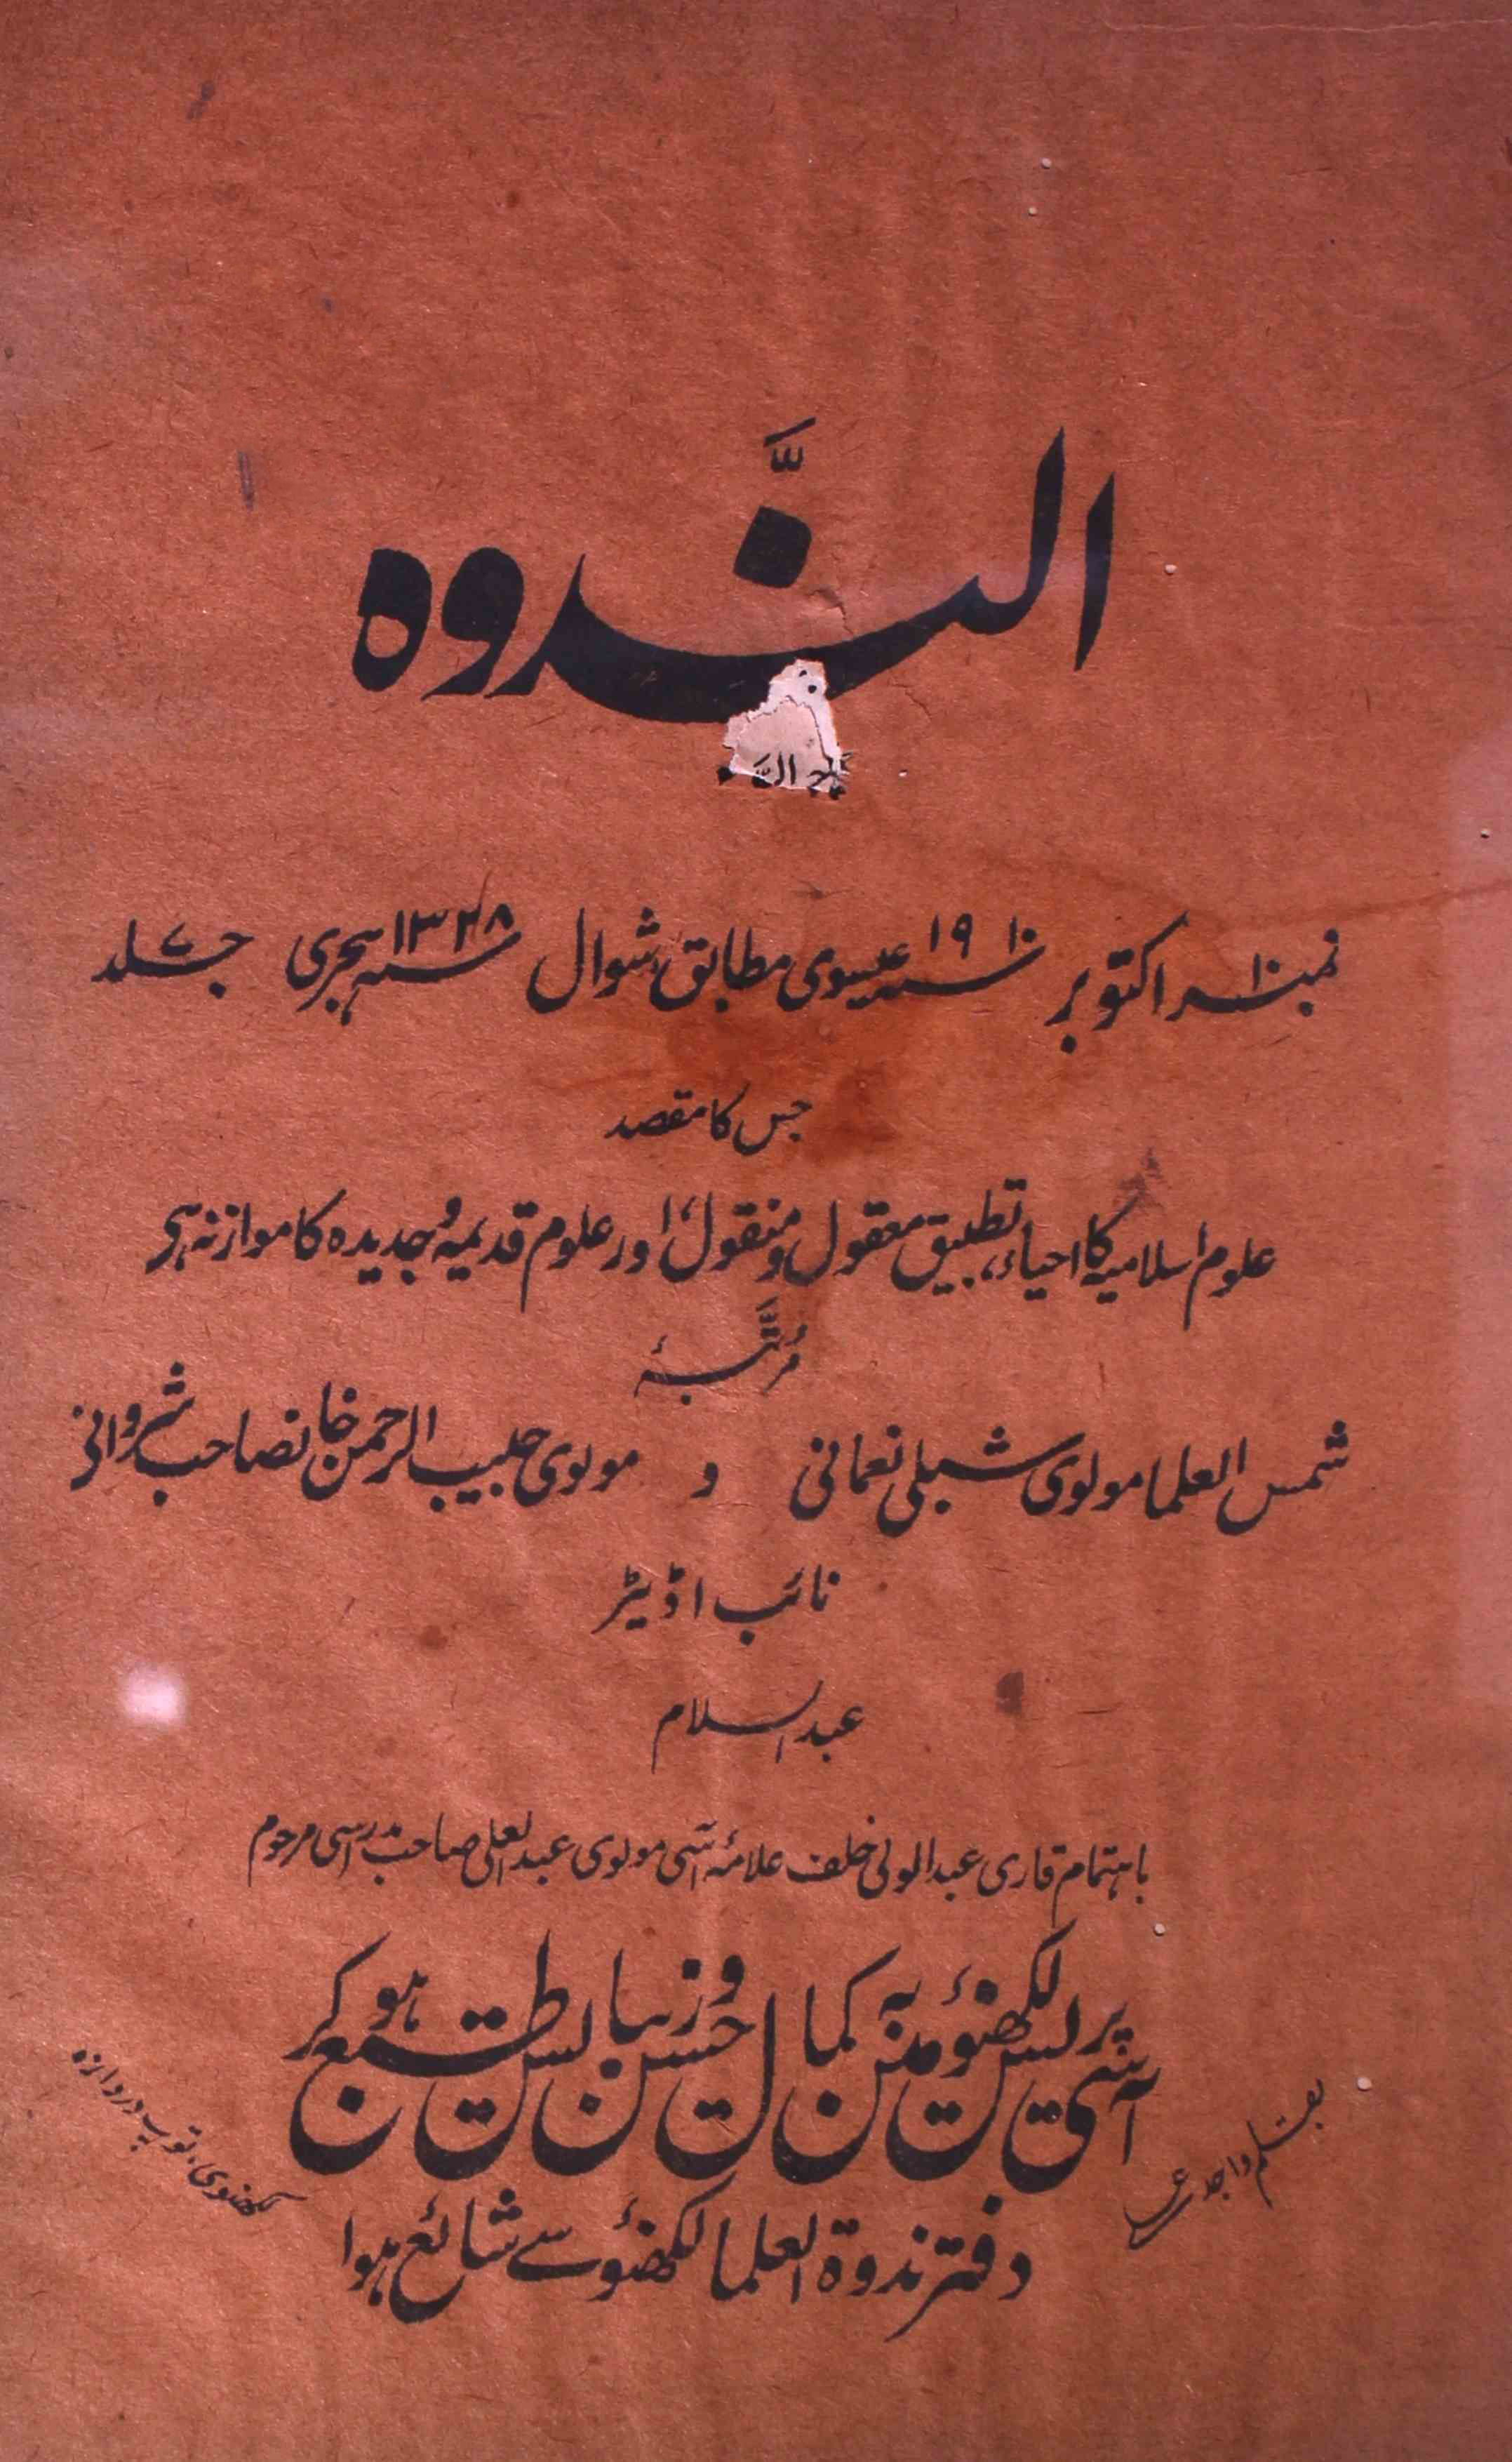 النَّدوہ
نمبر ۱۰ اکتوبر سنہ ۱۹۱۰ عیسوی مطابق شوال سنہ ۱۳۲۸ ہجری جلد ۷
جس کا مقصد
علوم اسلامیہ کا احیاء، تطبیق معقول و منقول، اور علوم قدیمہ و جدیدہ کا موازنہ ہی
مُرَتَّبۂ
شمس العلما مولوی شبلی نعمانی و مولوی حبیب الرحمن خانصاحب شروانی
نائب اڈیٹر
عبدالسلام
باہتمام قاری عبدالولی خلف علامۂ آسی مولوی عبدالعلی صاحب مدراسی مرحوم
آسی پریس لکھنؤ مین بہ کمال حسن و زیبایش طبع ہو کر
بقلم واجد علی
لکھنوی، توپ دروازہ
دفتر ندوۃ العلما لکھنؤ سے شائع ہوا